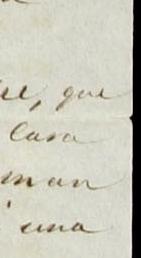 que
casa
man
una